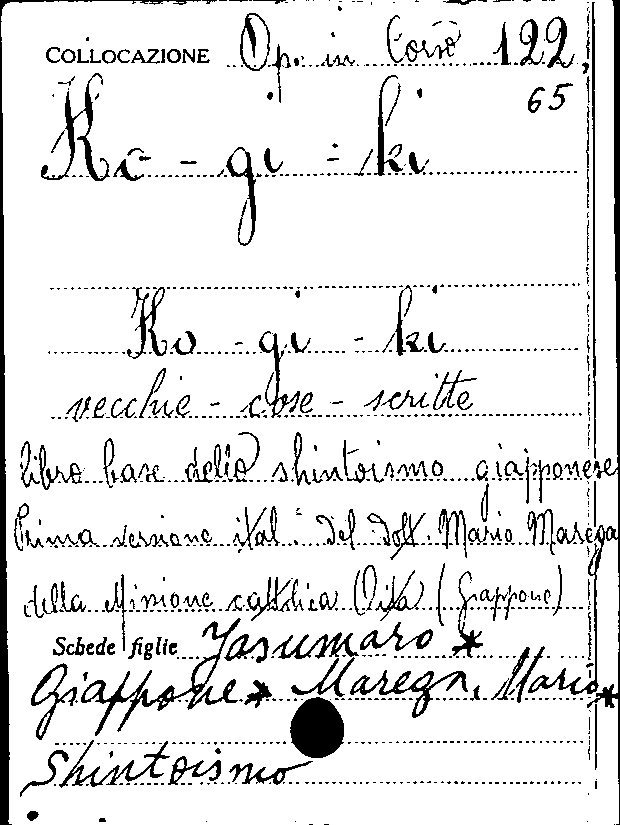 COLLOCAZIONE Op. in Corso 122,
65
Ko - gi - ki
Ko - gi - ki
vecchie - cose - scritte
libro base dello shintoismo giapponese
Prima versione ital. del dott. Mario Marega
della Missione cattolica Oita (Giappone)
Schede figlie Yasumaro *
Giappone * Marega, Mario *
Shintoismo